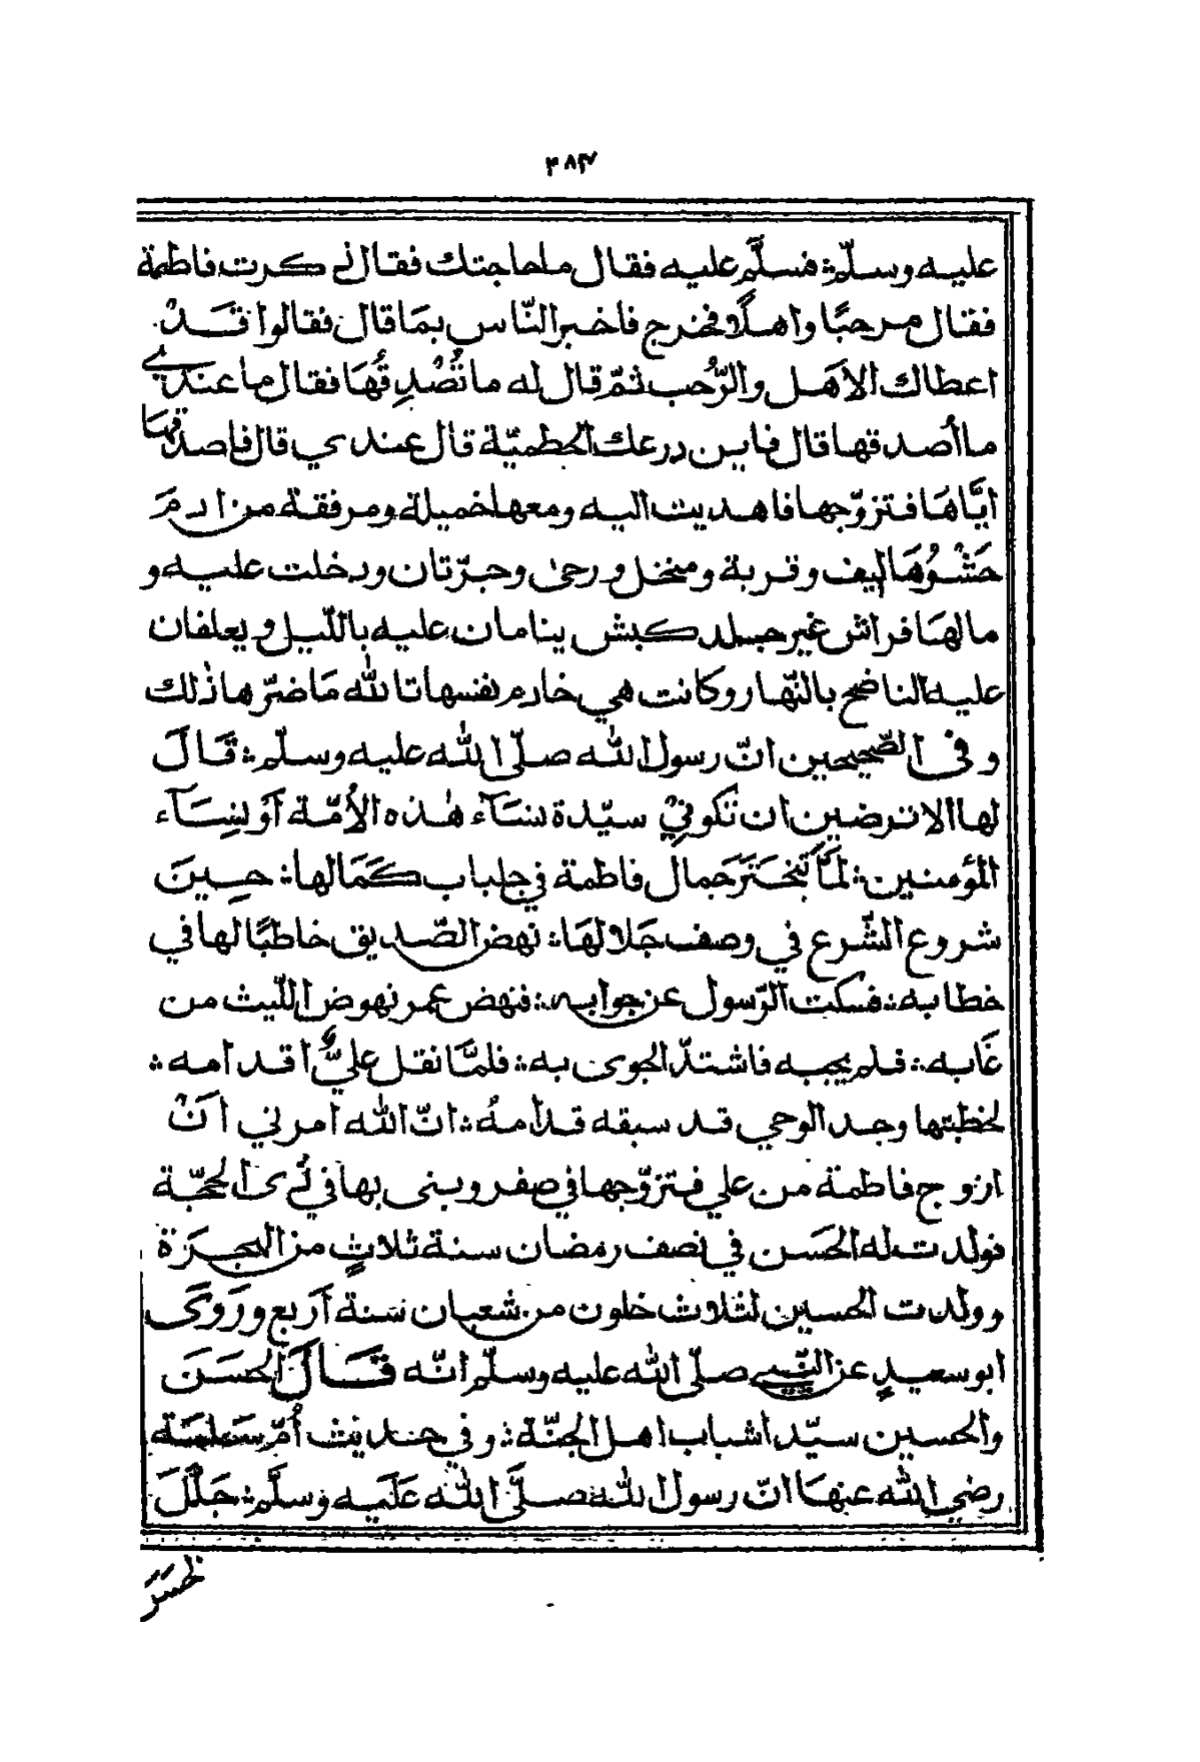 ٣٨٣
عليه وسلّم ؞ فسلَّم عليه فقال ما حاجتك فقال ذكرت فاطمة
فقال مرحبًا واهلًا فخرج فاخبر النّاس بمَا قال فقالوا قَدْ
اعطاك الاَهل والرُّحب ثمّ قال له ما تُصْدِقُهَا فقال ما عندي
ما أصدقها قال فاين درعك الحطميّة قال عندي قال فاصدقها
ايَّاهَا فتزوّجها فاهديت اليه ومعها خميلة ومرفقة من ادمَ
حَشْوُهَا ليف وقربة ومنخل ورحى وجرّتان ودخلت عليه و
ما لهَا فراش غير جلد كبش ينامان عليه باللّيل و يعلفان
عليه الناضح بالنّهار وكانت هي خادم نفسها تاللّٰه مَا ضرّها ذٰلك
وفى الصّحيحين انّ رسول اللّٰه صلّى اللّٰه عليه وسلّم ؞ قَالَ
لها الا ترضين ان تكونيْ سيّدة نسَآء هٰذه الأمّة أوْ نِسَآء
المؤمنين ؞ لمَّا تَبَخْتَرَ جَمال فاطمة في جلباب كَمَالها ؞ حِينَ
شروع الشّرع في وصف جَلالهَا ؞ نهض الصّديق خاطبًا لها في
خطابه ؞ فسكت الرّسول عن جوابه ؞ فنهض عمر نهوض اللّيث من
غَابه ؞ فلم يجبه فاشتدّ الجوى به ؞ فلمَّا نقل عليٌّ اقدامه ؞
لخطبتها وجد الوحي قد سبقه قدامهُ ؞ انّ اللّٰه امرني انْ
ازوج فاطمة من علي فتزوّجها في صفر وبنى بها في ذي الحجّة
فولدت له الحَسن في نصف رمضان سنة ثلاثٍ من الهجرَة
وولدت الحسين لثلاث خلون من شعبان سَنة أربع ورَوَى
ابو سعيدٍ عن النّبي صلّى اللّٰه عليه وسلّم انّه قَالَ الحَسَن
والحسين سيّدا شباب اهل الجنّة ؞ وفي حديث أمّ سَلمَة
رضي اللّٰه عنهَا انّ رسول اللّٰه صلَّى اللّٰه عَلَيه وَسلَّم ؞ جَلَّلَ